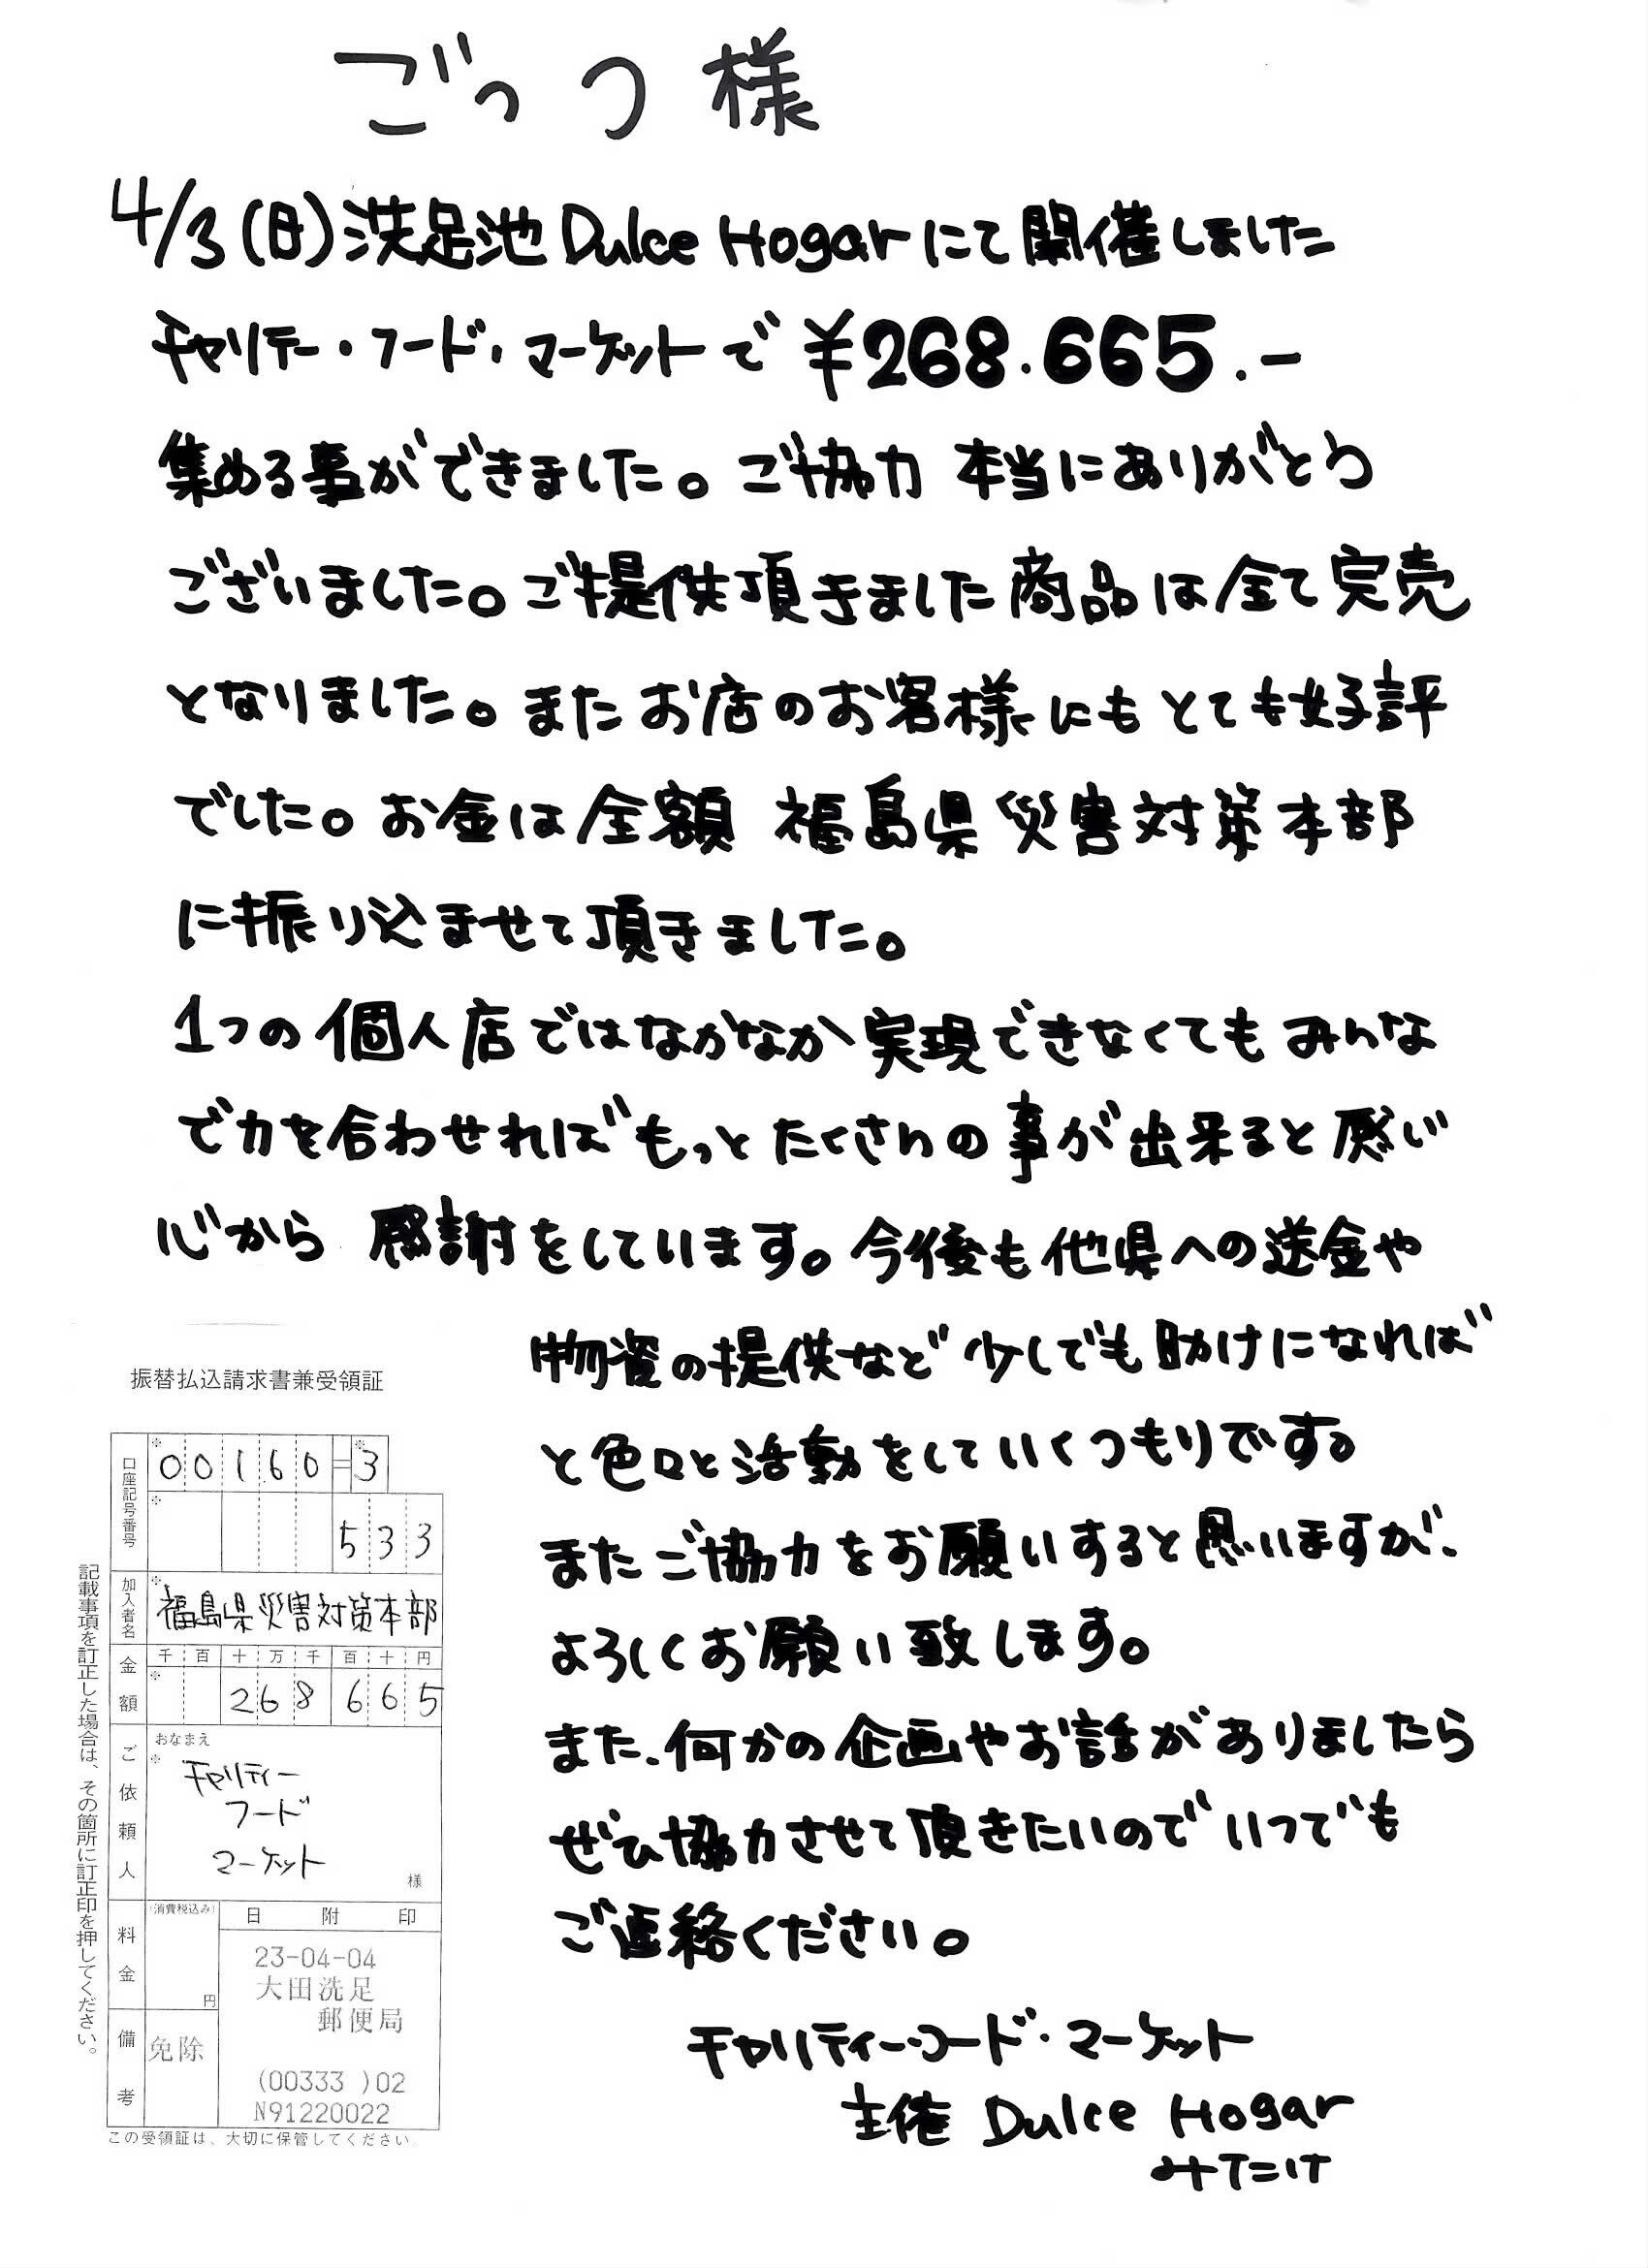 ごっつ様
4/3(日)洗足池Dulce Hogarにて開催しました
チャリテー・フード・マーケットで ¥268.665.-
集める事ができました。ご協力 本当にありがとう
ございました。ご提供頂きました商品は全て完売
となりました。またお店のお客様にもとても好評
でした。お金は全額 福島県災害対策本部
に振り込ませて頂きました。
1つの個人店ではなかなか実現できなくてもみんな
で力を合わせればもっとたくさんの事が出来ると感じ
心から 感謝をしています。今後も他県への送金や
物資の提供など少しでも助けになれば
と色々と活動をしていくつもりです。
またご協力をお願いすると思いますが、
よろしくお願い致します。
また、何かの企画やお話がありましたら
ぜひ協力させて頂きたいのでいつでも
ご連絡ください。
チャリティー・フード・マーケット
主催 Dulce Hogar
みたけ
振替払込請求書兼受領証
口座記号番号
※ 00160=※3
※ 533
加入者名
※ 福島県災害対策本部
金額
千 百 十 万 千 百 十 円
※ 268665
ご依頼人
おなまえ
※ チャリティー
フード
マーケット
様
料金
(消費税込み)
円
日 附 印
23-04-04
大田洗足
郵便局
(00333 )02
N91220022
備考
免除
記載事項を訂正した場合は、その箇所に訂正印を押してください。
この受領証は、大切に保管してください。